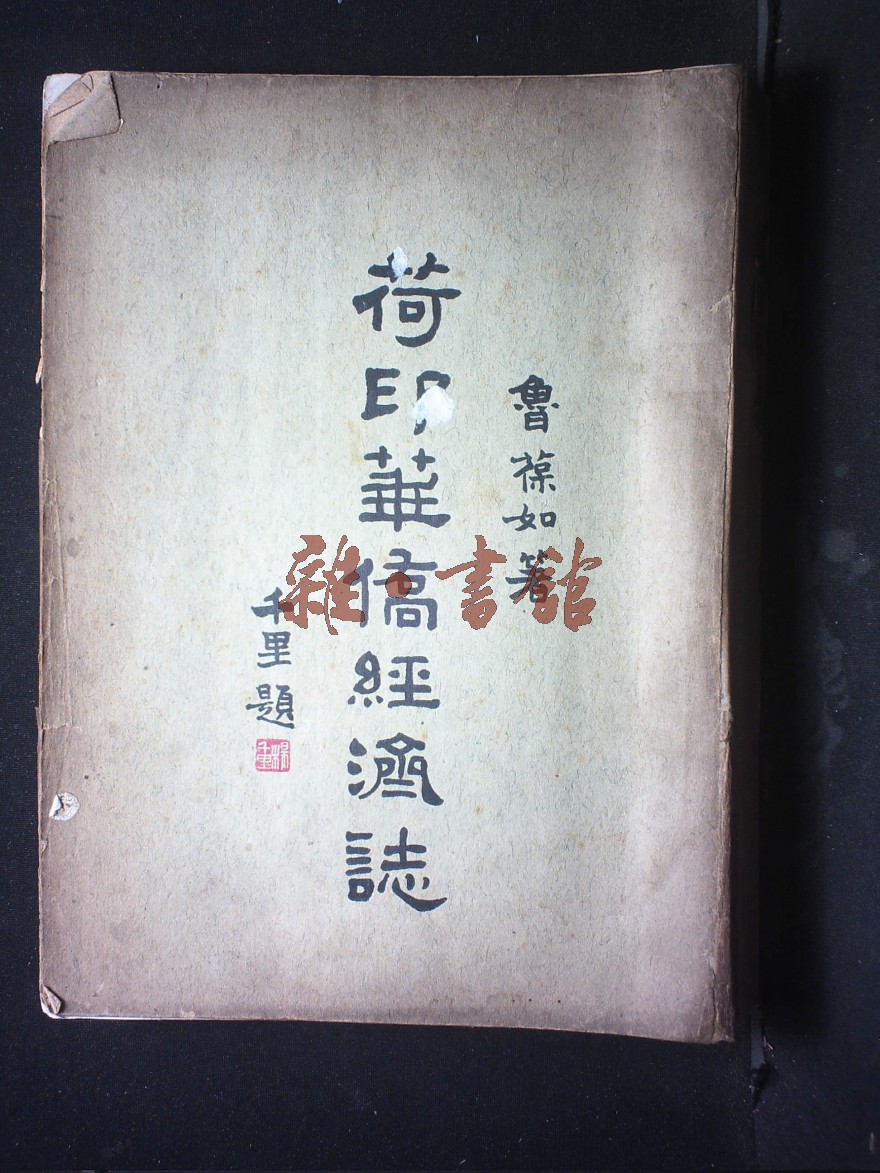 魯葆如著
荷印華僑經濟誌
千里題
雜·書館